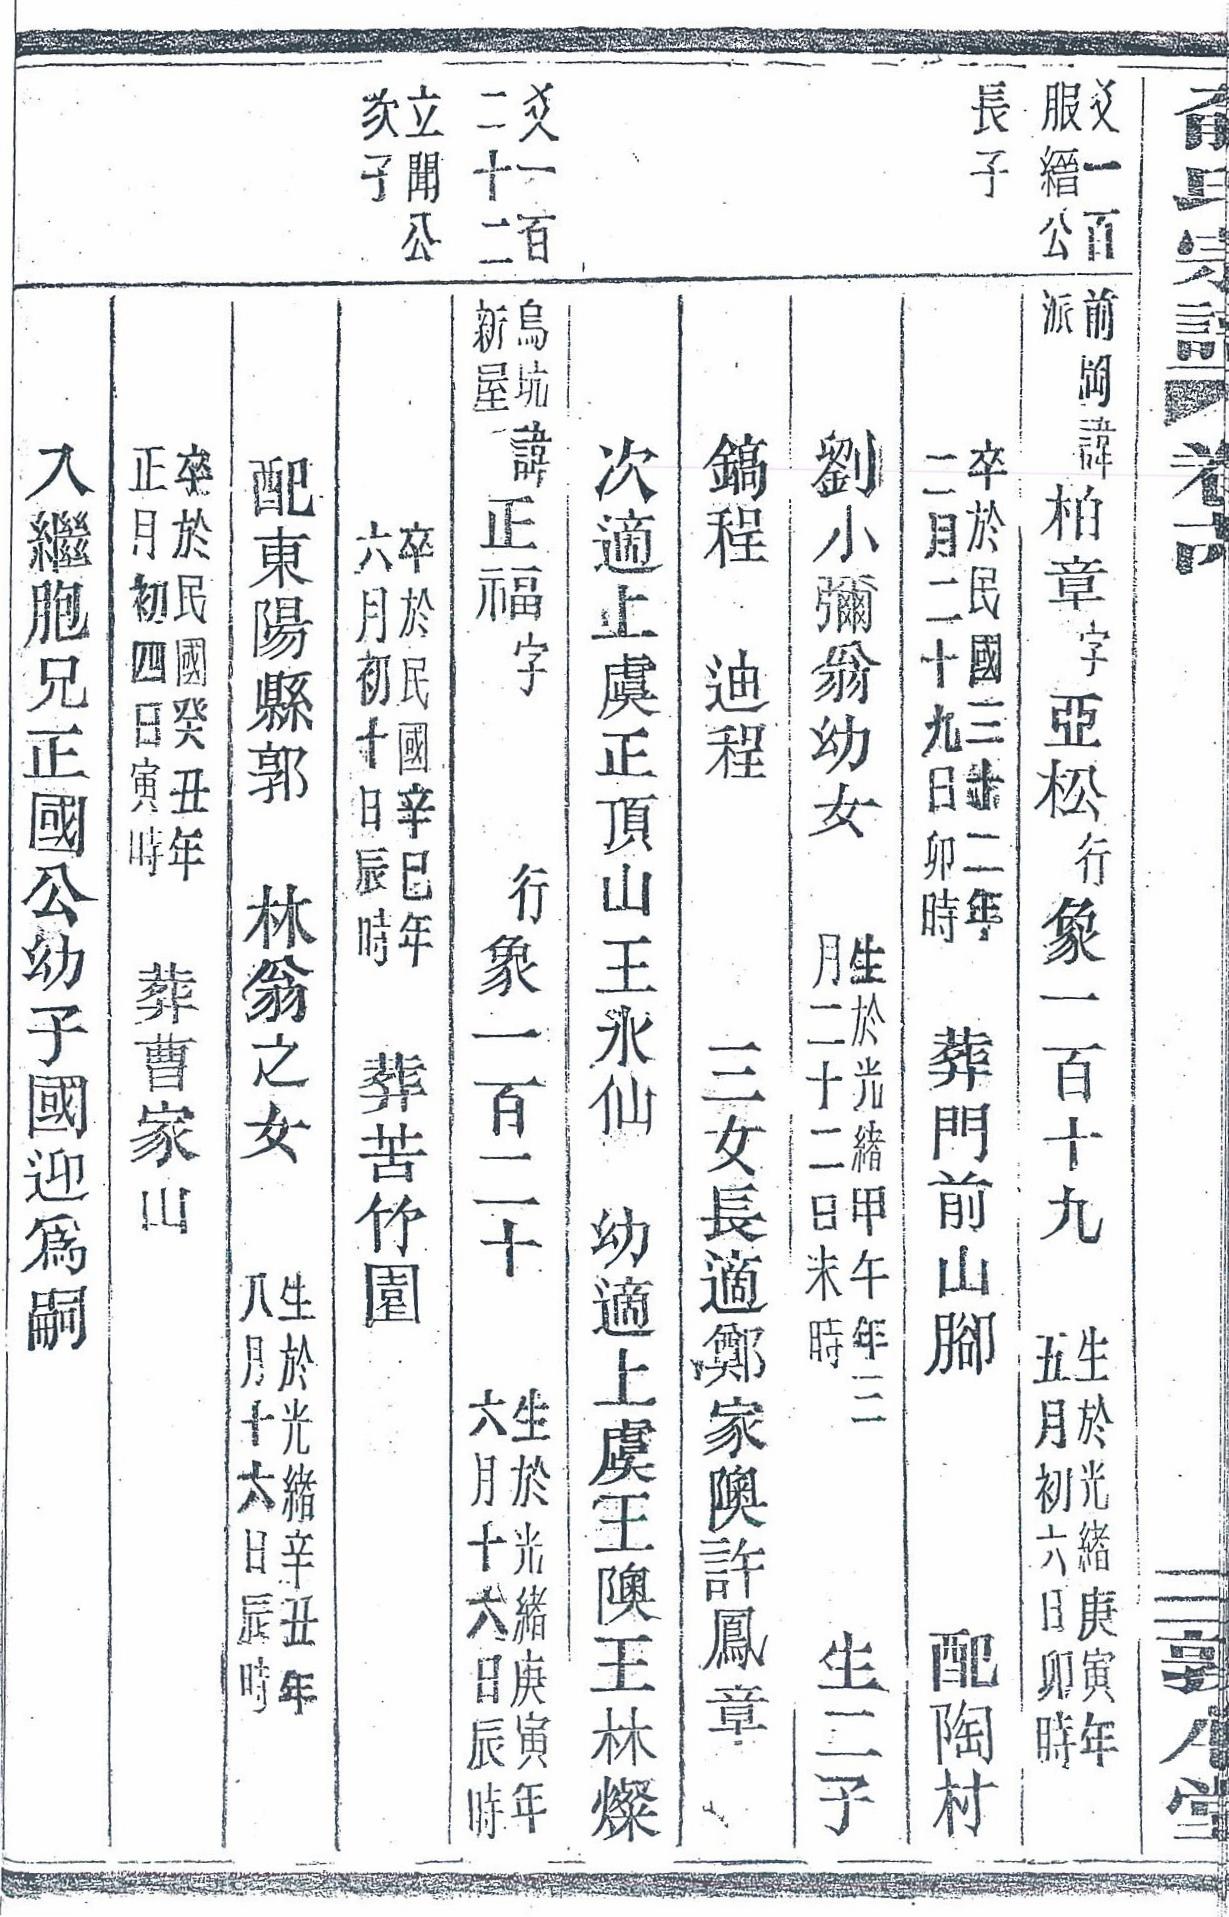 氏宗譜 卷
爻一百
服縉公
長子
前岡派諱柏章字亞松行象一百十九 生於光緒庚寅年五月初六日卯時
卒於民國三十二年二月二十九日卯時 葬門前山腳 配陶村
劉小彌翁幼女 生於光緒甲午年三月二十二日未時 生二子
鎬程 迪程 三女長適鄭家隩許鳳章
次適上虞正頂山王永仙 幼適上虞王隩王林燦
爻一百
二十二
立聞公
次子
烏坑新屋諱正福字 行象一百二十 生於光緒庚寅年六月十六日辰時
卒於民國辛巳年六月初十日辰時 葬苦竹園
配東陽縣郭 林翁之女 生於光緒辛丑年八月十六日辰時
卒於民國癸丑年正月初四日寅時 葬曹家山
入繼胞兄正國公幼子國迎爲嗣